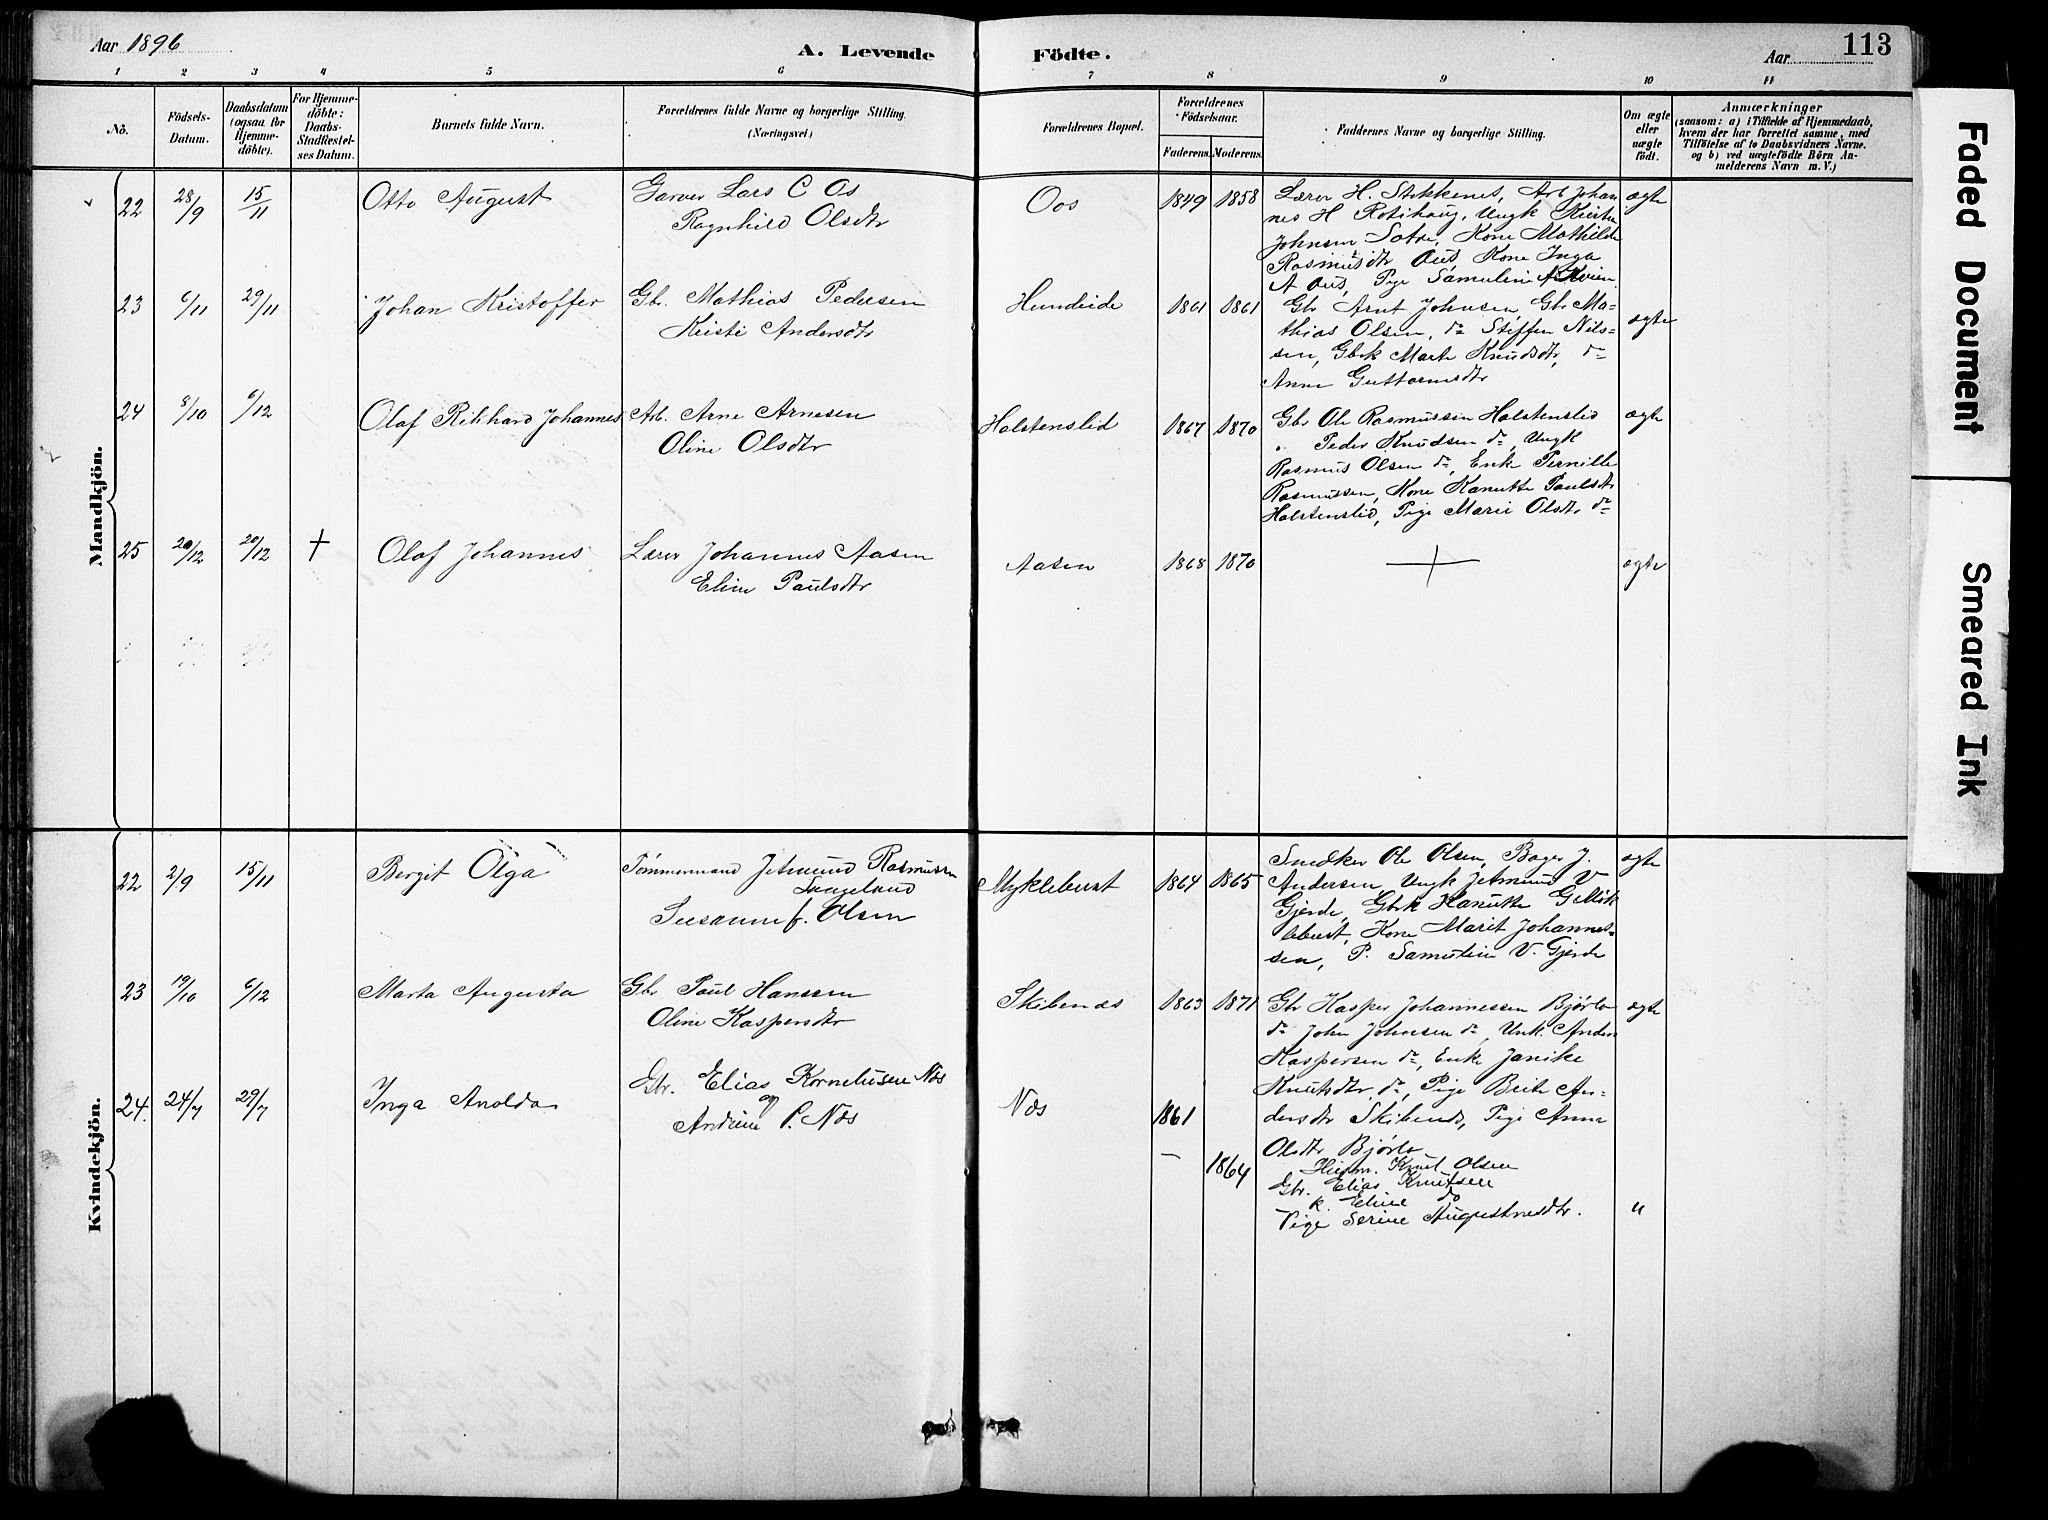 Aar 1896
A. Levende Födte.
Aar
113
1 2 3 4 5 6 7 8 9 10 11
No.
Födsels-Datum.
Daabsdatum (ogsaa for Hjemmedöbte).
For Hjemmedöbte: Daabs-Stadfæstelses Datum.
Barnets fulde Navn.
Forældrenes fulde Navne og borgerlige Stilling. (Næringsvei)
Forældrenes Bopæl.
Forældrenes Födselsaar.
Faderens. Moderens.
Faddernes Navne og borgerlige Stilling.
Om ægte eller uægte födt.
Anmærkninger
(saasom: a) i Tilfælde af Hjemmedaab, hvem der har forrettet samme, med Tilföielse af to Daabsvidners Navne. og b) ved uægtefödte Börn Anmelderens Navn m.V.)
Mandkjön.
22 28/9 15/11 Otto August
Garver Lars C Os
Ragnhild Olsdtr
Oos 1849 1858
Lærer H. Stokkenes, Arb Johan
nes H Rotihaug, Ungk
Johnsen Sætre, Kone Mathilde
Rasmusdtr Aus Kone Inga
A Aus, Pige Samuline A Kvien
ægte
23 6/11 29/11 Johan Kristoffer
Gb. Mathias Pedersen
Kristi Andersdtr
Hundeide 1861 1861
Gbr Arnt Johnsen, Gbr Ma-
thias Olsen, do Steffen Nils-
sen, Gbrk Marte Knudsdtr, do
Anne Guttormsdtr
ægte
24 8/10 6/12 Olaf Rikhard Johannes
Arb. Arne Arnesen
Oline Olsdtr
Holstenslid 1867 1870
Gbr Ole Rasmussen Holstenslid
" Peder Knudsen do, Ungk
Rasmus Olsen do, Enke Pernille
Rasmussen, Kone Kanutte Paulsdtr
Holstenslid, Pige Marie Olsdtr do
ægte
25 20/12 20/12 + Olaf Johannes
Lærer Johannes Aasen
Eline Paulsdtr
Aasen 1868 1870
+
ægte
Kvindekjön.
22 2/9 15/11 Bergit Olga
Tømmermand Jetmund Rasmussen
Langeland
Susanne f. Olsen
Myklebust 1864 1865
Snedker Ole Olsen, Bager J.
Andersen, Ungk Jetmund V
Gjerde, Gbrk Kanutte G Mÿk
lebust, Kone Marit Johannes-
sen, P. Samuline V. Gjerde
ægte
23 19/10 6/12 Marta Augusta
Gbr Paul Hanssen
Oline Kaspersdtr
Skibenæs 1863 1871
Gbr Kasper Johannessen Bjørlo
do John Johnsen do, Unk. Anders
Kaspersen do, Enke Janike
Knutsdtr do, Pige Brite An-
dersdtr Skibenæs, Pige Anna
Olsdtr Bjørlo
ægte
24. 24/7 29/7 Inga Anolda
Gbr. Elias Kornelusen Næs
og
Andrine P. Næs
Næs 1861
– 1864
Knut Olsen
Gbr. Elias Knutsen
k. Eline do
Pige Serine Augustinusdtr.
"
Faded Document
Smeared Ink